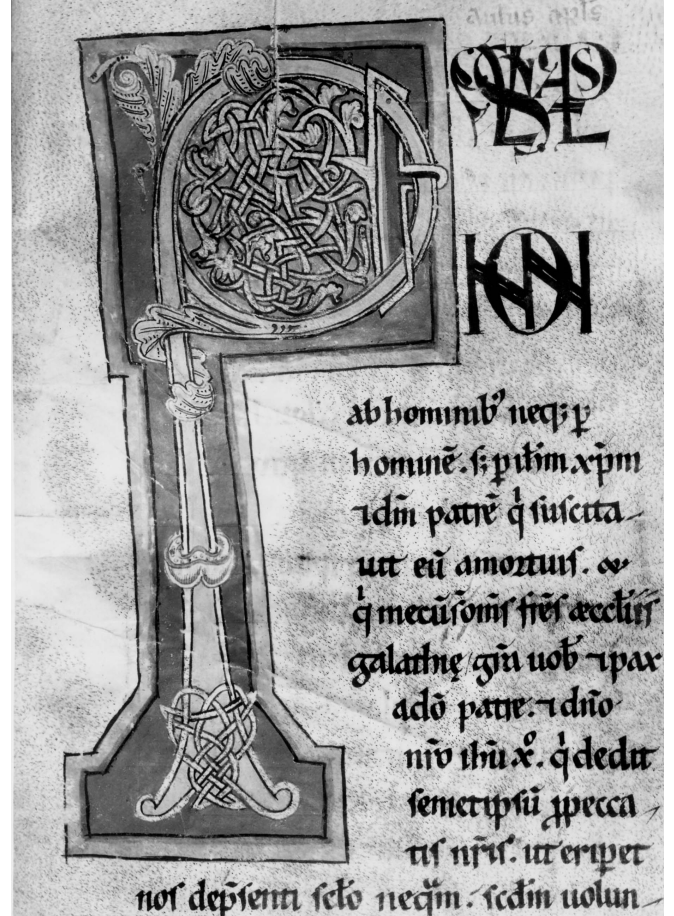 P
NON
ab hominib' neq; p
hominē. s; p ihm xpm
⁊ dm̄ patrē q suscita
uit eū amortuis. &
q mecū s̄ om̄s fr̄es æccl̄iis
galathię gr̄a uob ⁊ pax
adō patre. ⁊ dn̄o
nr̄o ihu x̄o. q dedit
semetipsū p pecca
tis nr̄is. ut eripet
nos dep̄senti sclo neq̄m. scdm uolun